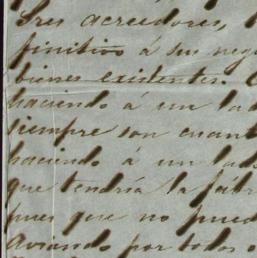 Tres acreedores,
finitivo á sus nego
bienes existentes.
haciendo á un lad
siempre son cuant
haciendo á un lad
que tendría la fábr
pues que no pued
aviando por todos